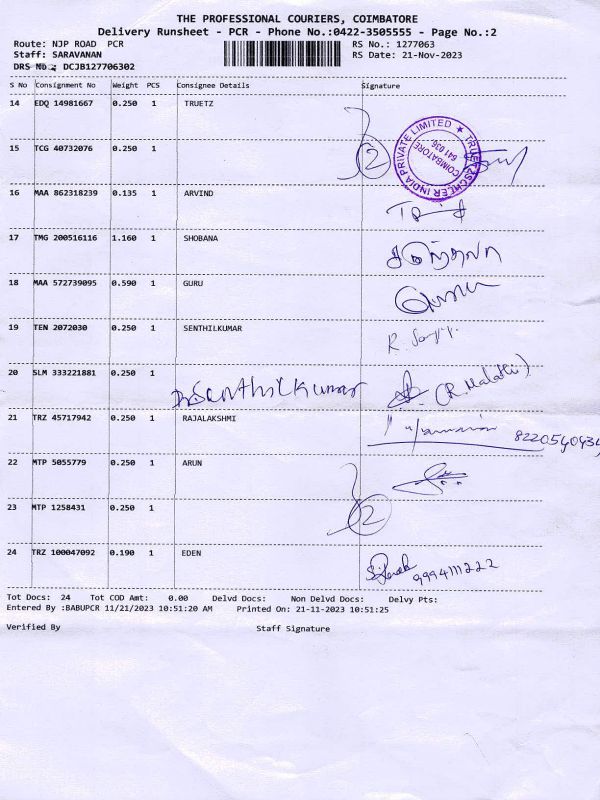 THE PROFESSIONAL COURIERS, COIMBATORE
Delivery Runsheet - PCR - Phone No.:0422-3505555 - Page No.:2
Route: NJP ROAD PCR RS No.: 1277063
Staff: SARAVANAN RS Date: 21-Nov-2023
DRS No.: DCJB127706302
S No Consignment No Weight PCS Consignee Details Signature
14 EDQ 14981667 0.250 1 TRUETZ
2
TRUETZSCHLER INDIA PRIVATE LIMITED ★
COIMBATORE
641 036
15 TCG 40732076 0.250 1
16 MAA 862318239 0.135 1 ARVIND
17 TMG 200516116 1.160 1 SHOBANA
18 MAA 572739095 0.590 1 GURU
19 TEN 2072030 0.250 1 SENTHILKUMAR
20 SLM 333221881 0.250 1
Dr Senthil Kumar (R. Malathi)
21 TRZ 45717942 0.250 1 RAJALAKSHMI
22 MTP 5055779 0.250 1 ARUN
23 MTP 1258431 0.250 1
2
24 TRZ 100047092 0.190 1 EDEN
9994111222
Tot Docs: 24 Tot COD Amt: 0.00 Delvd Docs: Non Delvd Docs: Delvy Pts:
Entered By :BABUPCR 11/21/2023 10:51:20 AM Printed On: 21-11-2023 10:51:25
Verified By Staff Signature